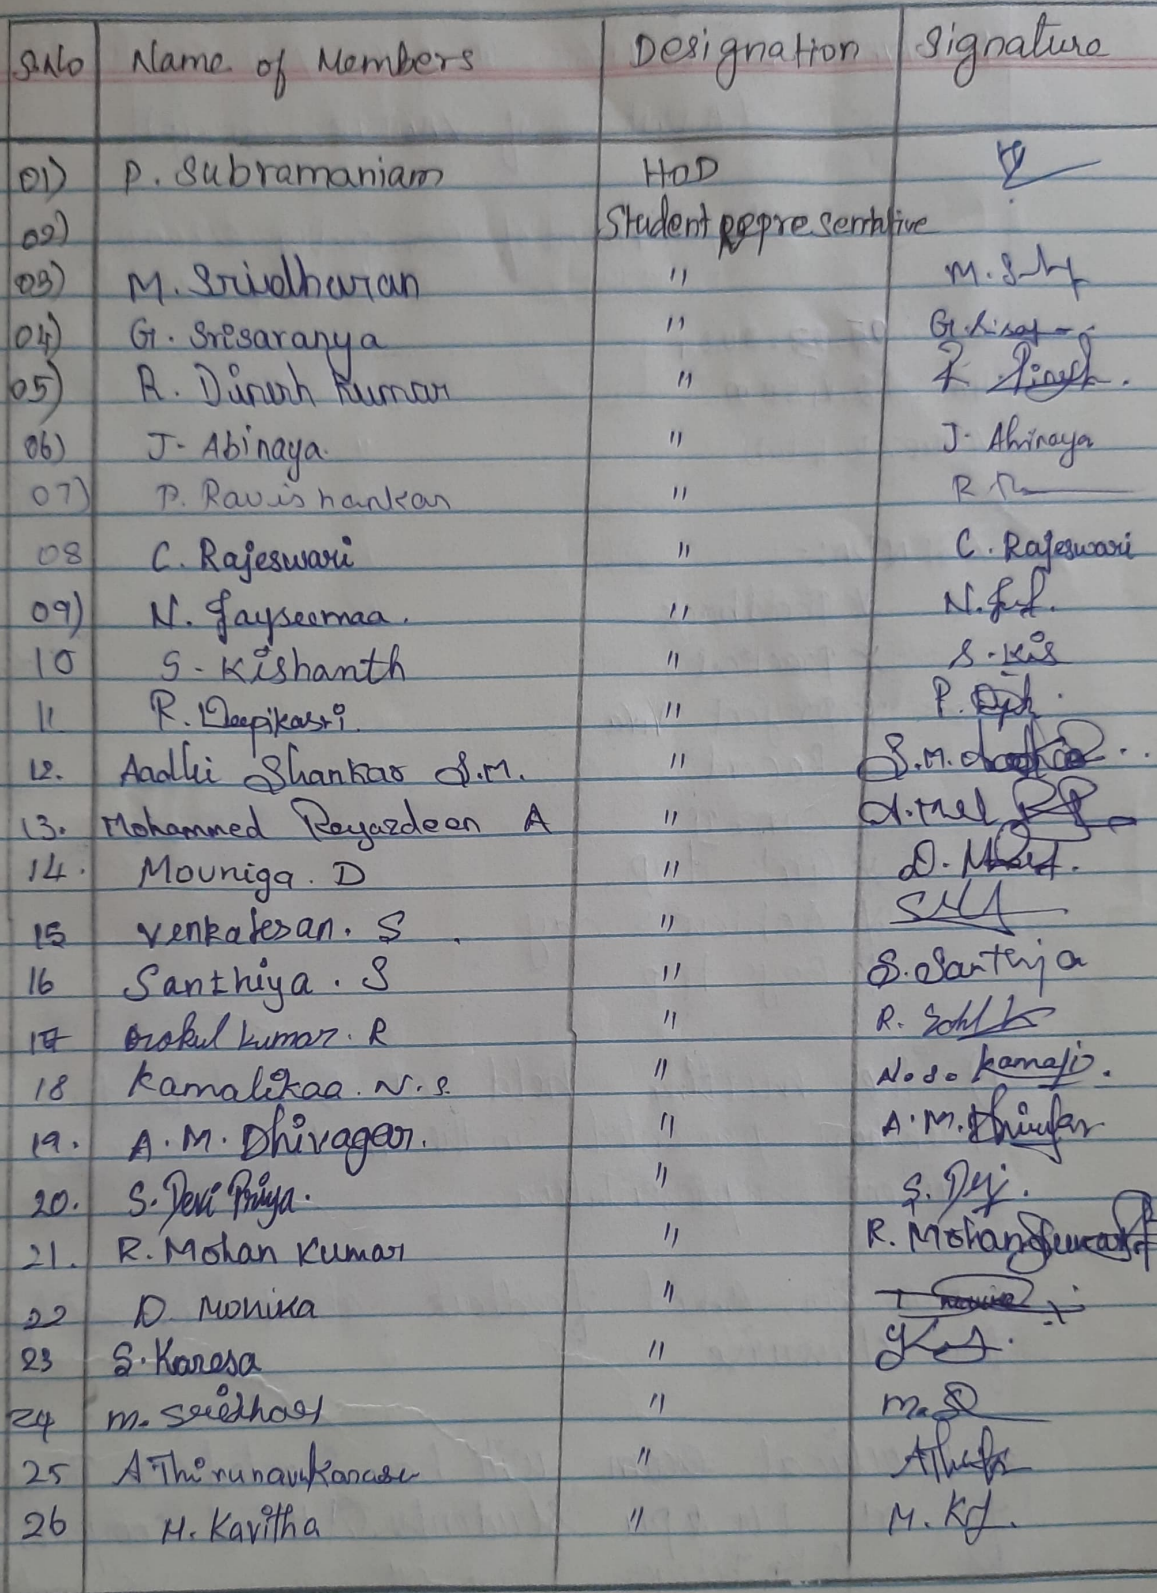 S.No Name of Members Designation Signature
01) P. Subramaniam HOD
02) Student Representative
03) M. Sridharan " M. S
04) G. Srisaranya " G.
05) R. Dinesh Kumar " R. Dinesh.
06) J. Abinaya. " J. Abinaya
07) P. Ravishankar " R
08 C. Rajeswari " C. Rajeswari
09) N. Jayseemaa. " N.
10 S. Kishanth " S. Kis
11 R. Deepikasri. " P.
12. Aadhi Shankar S.M. " S.M.
13. Mohammed Reyazdeen A "
14. Mouniga. D " D.
15 Venkatesan. S "
16 Santhiya. S " S. Santhiya
17 Gokul kumar. R " R.
18 Kamalikaa. N.S. " N.S.
19. A.M. Dhivagar. " A.M.
20. S. Devi Priya. " S.
21. R. Mohan Kumar " R. Mohan
22 D. Monika "
23 S. Karesa "
24 M. Sridhar " M. S
25 A Thirunavukarasu "
26 M. Kavitha " M.